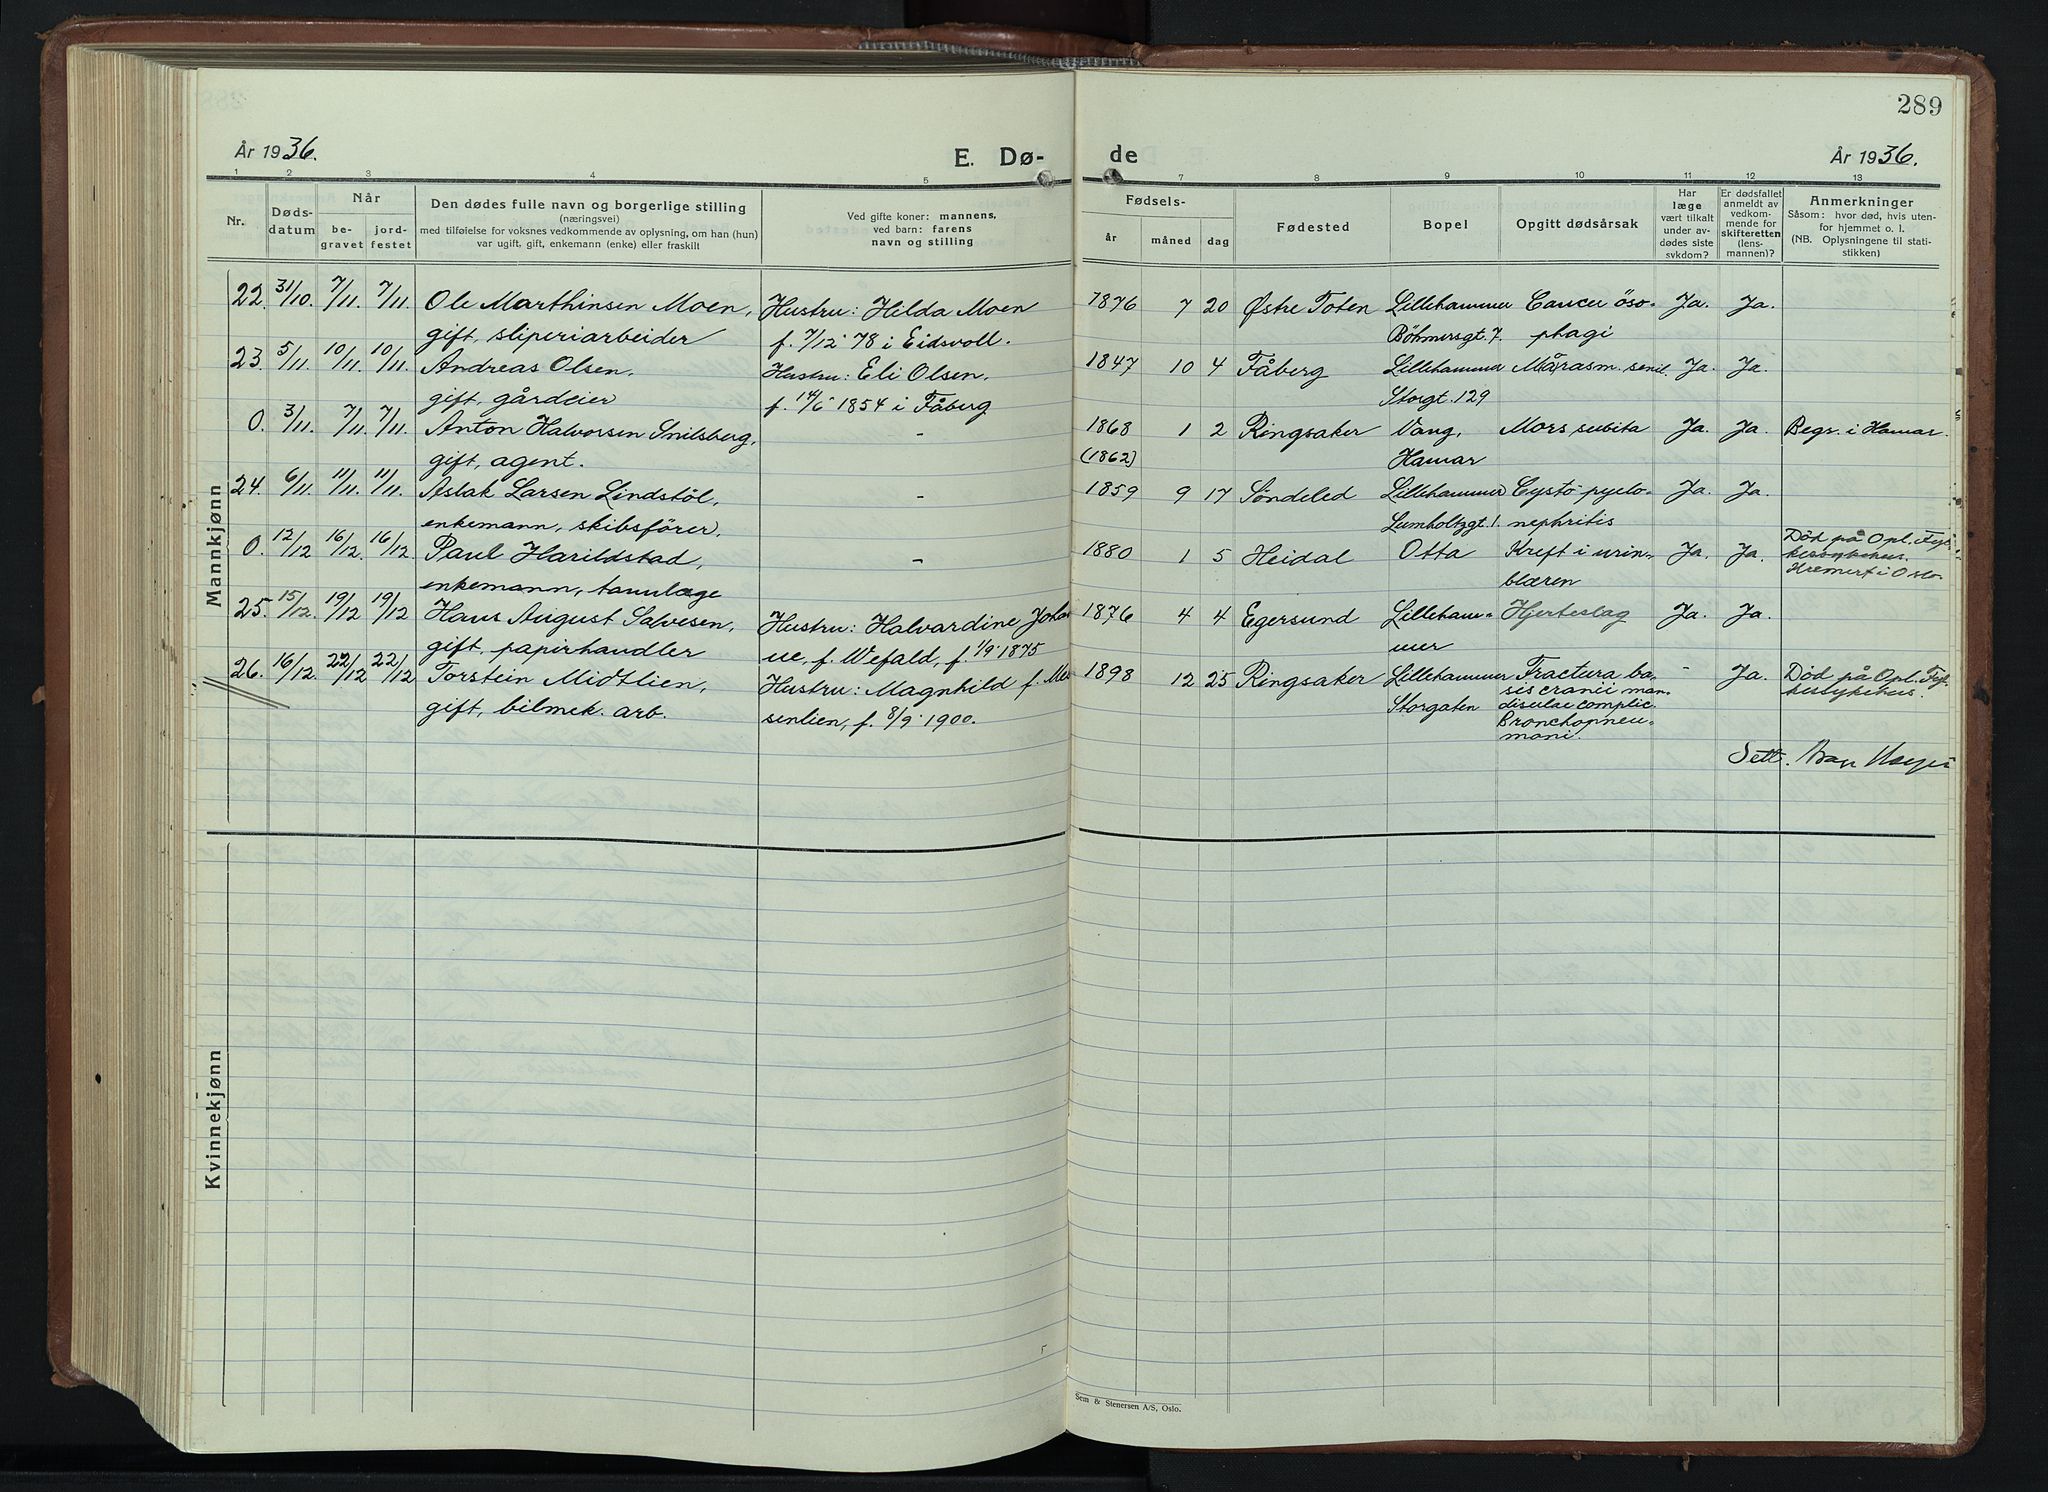 289
År 1936.
E. Dø-
de
År 1936.
1 2 3 4 5 7 8 9 10 11 12 13
Nr.
Døds-
datum
Når
be-
gravet
jord-
festet
Den dødes fulle navn og borgerlige stilling
(næringsvei)
med tilføielse for voksnes vedkommende av oplysning, om han (hun)
var ugift, gift, enkemann (enke) eller fraskilt
Ved gifte koner: mannens,
ved barn: farens
navn og stilling
Fødsels-
år
måned
dag
Fødested
Bopel
Opgitt dødsårsak
Har
læge
vært tilkalt
under av-
dødes siste
sykdom?
Er dødsfallet
anmeldt av
vedkom-
mende for
skifteretten
(lens-
mannen)?
Anmerkninger
Såsom: hvor død, hvis uten-
for hjemmet o. l.
(NB. Oplysningene til stati-
stikken)
Mankjønn
22. 31/10. 7/11. 7/11. Ole Marthinsen Moen, Hustru: Hilda Moen 1876 7 20 Østre Toten Lillehammer Cancer öso- Ja. Ja.
gift, sliperiarbeider f. 7/12 78 i Eidsvoll. Böhmersgt. 7. phagi
23. 5/11. 10/11. 10/11. Andreas Olsen, Hustru: Eli Olsen, 1847 10 4 Fåberg Lillehammer Mårasm. senil. Ja. Ja.
gift, gårdeier f. 14/6 1854 i Fåberg Storgt. 129
0. 3/11. 7/11. 7/11. Anton Halvorsen Snilsberg, - 1868 1 2 Ringsaker Vang, Mors subita Ja. Ja. Begr. i Hamar.
gift, agent. (1862) Hamar
24. 6/11. 11/11. 11/11. Aslak Larsen Lindstöl, - 1859 9 17 Søndeled Lillehammer Cysto-pyelo- Ja. Ja.
enkemann, skibsfører. Lumholtzgt. 1. nephritis
0. 12/12 16/12. 16/12. Paul Harildstad, - 1880 1 5 Heidal Otta Kreft i urin- Ja. Ja. Død på Opl. Fyl-
enkemann, tannlæge blæren kessykehus.
Kremert i Oslo.
25. 15/12. 19/12 19/12 Hans August Salvesen, Hustru: Halvardine Johan 1876 4 4 Egersund Lilleham- Hjerteslag Ja. Ja.
gift, papirhandler ne, f. Wefald, f. 1/9 1875 mer
26. 16/12. 22/12 22/12 Torstein Midtlien, Hustru: Magnhild f. Mes 1898 12 25 Ringsaker Lillehammer Fractura ba- - Ja. Død på Opl. Fyl-
gift, bilmek. arb. senlien, f. 8/9 1900. Storgaten sis cranii man- kessykehus.
dibulae complic.
Bronchopneu-
moni.
Sett.
Kvinnekjønn
Sem & Stenersen A/S, Oslo.